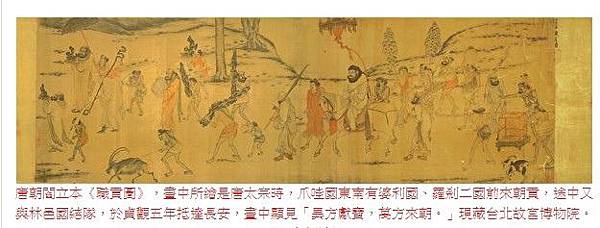 唐朝閻立本《職貢圖》，畫中所繪是唐太宗時，爪哇國東南有婆利國、羅剎二國前來朝貢，途中又
與林邑國結隊，於貞觀五年抵達長安，畫中顯見「異方獻寶，萬方來朝。」現藏台北故宮博物院。